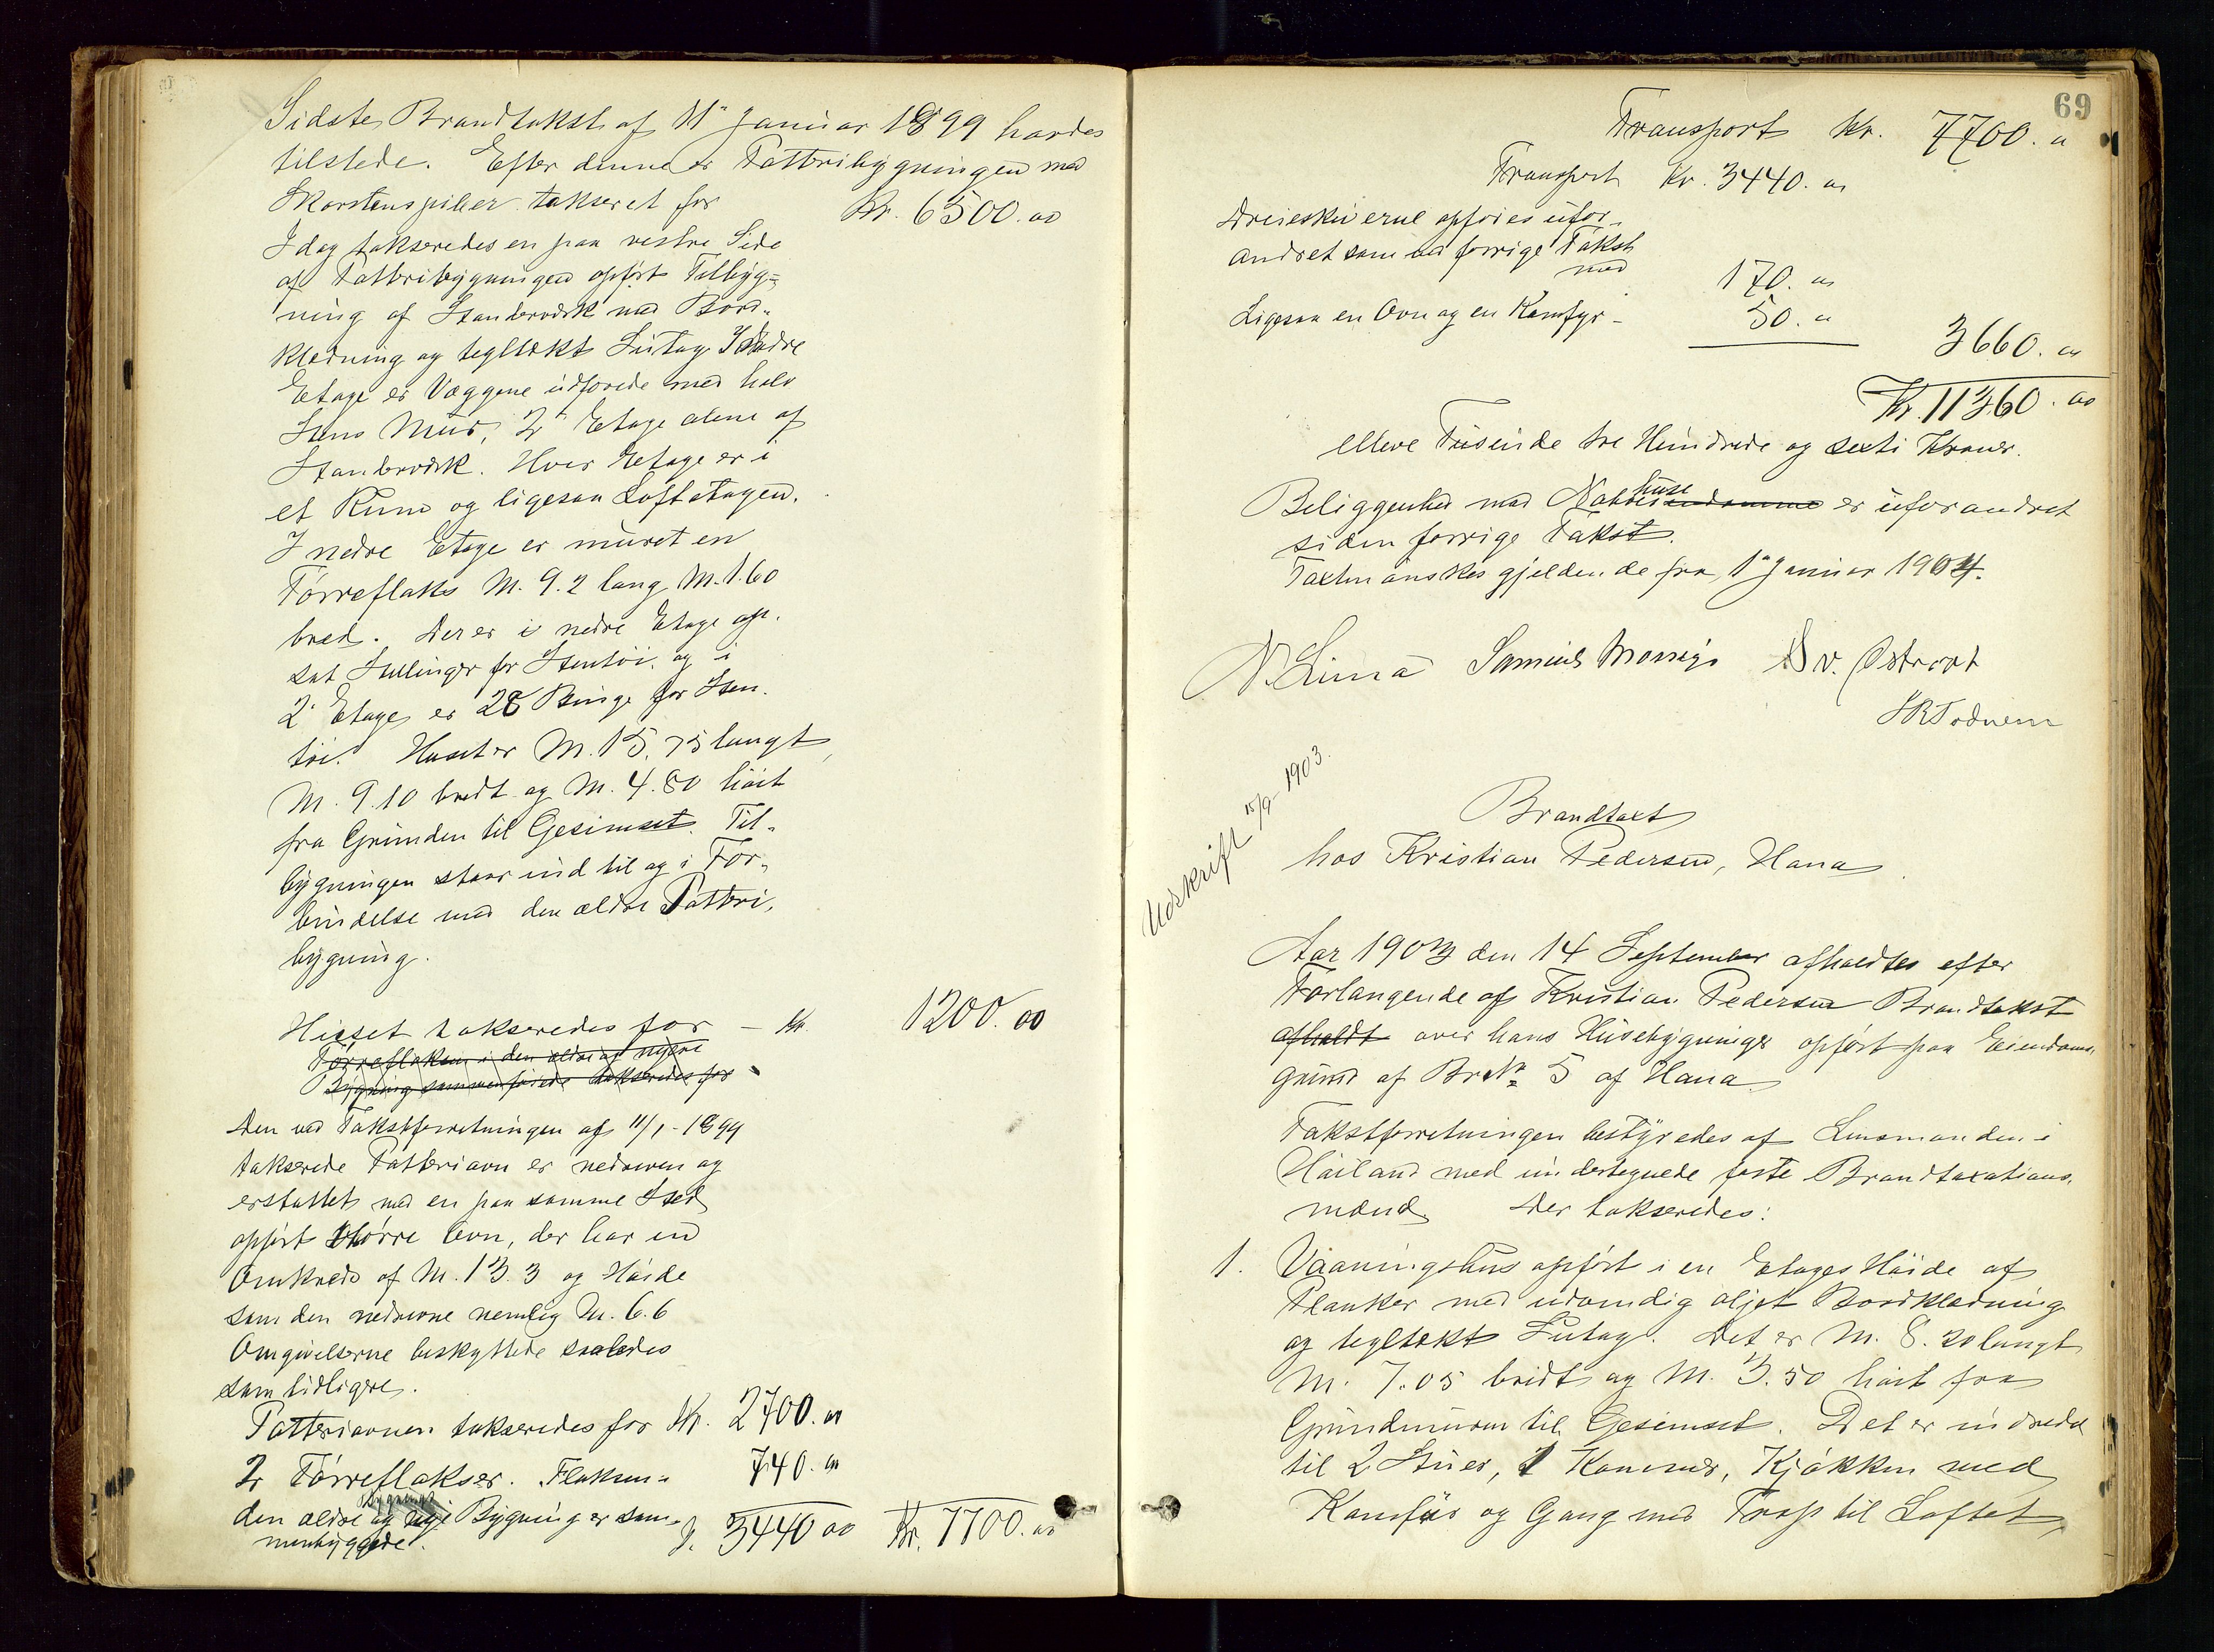 Sidste Brandtakst af 11te Januar 1899 havdes
tilstede. Efter denne er Potteribygningen med
Skorstenspiber takseret for Kr. 6500.00
I dag takseredes en paa vestre Side
af Potteribygningen opført Tilbyg-
ning af Standerværk med Bord-
klædning og tegltækt Sutag. I nedre
Etage er Væggene udforede med halv
Stens Mur, 2den Etage alene af
Standerværk. Hver Etage er i
et Rum og ligesaa Loftetagen.
I nedre Etage er muret en
Tørreflaks M. 9.2 lang M. 1.60
bred. Der er i nedre Etage op-
sat Stillinger for Stentøi og i
2. Etage er 28 Binge for Sten-
tøi. Huset er M. 15.75 langt,
M. 9.10 bredt og M. 4.80 høit
fra Grunden til Gesimset. Til-
bygningen staar ind til og i For-
bindelse med den ældre Potteri-
bygning.
Huset takseredes for - Kr. 1200.00
Tørreflaksen i den ældre og nyere
Bygning sammenføiede takseredes for
Den ved Takstforretningen af 11/1-1899
takserede Potteriovn er nedreven og
erstattet med en paa samme Sted
opført større Ovn, der har en
Omkreds af M. 13.3 og Høide
som den nedrevne nemlig M. 6.6
Omgivelserne beskyttede saaledes
som tidligere.
Potteriovnen takseredes for Kr. 2700.00
2 Tørreflakser. Flaksen i 740.00
den ældre og nye Bygning er sam-
menbyggede. 3440 00 Kr. 7700.00
69
Transport Kr. 7700.00
Transport Kr. 3440.00
Dreieskiverne opføres ufor-
andret som ved forrige Takst
med 170.00
Ligesaa en Ovn og en Komfyr - 50.00 3660.00
Kr. 11360.00
elleve Tusinde tre Hundrede og sexti Kroner.
huse
Beliggenhed med Naboeiendomme er uforandret
siden forrige Takst.
Taxten ønskes gjeldende fra 1te Januar 1904.
N. Lima Samuel Mossige Sv. Østraat
Udskrift 15/9-1903.
Brandtaxt
hos Kristian Pedersen, Hana
Aar 1903 den 14 September afholdtes efter
Forlangende af Kristian Pedersen Brandtakst
afholdt over hans Husebygninger opført paa Eiendoms-
grund af Br.No 5 af Hana
Takstforretningen bestyredes af Lensmanden i
Høiland med undertegnede faste Brandtaxations-
mænd Der takseredes:
1. Vaaningshus opført i en Etages Høide af
Planker med udvendig oljet Bordklædning
og tegltækt Sutag. Det er M. 8.20 langt
M. 7.05 bredt og M. 3.50 høit fra
Grundmuren til Gesimset. Det er indredet
til 2 Stuer, 1 Kammer, Kjøkken med
Komfür og Gang med Trap til Loftet,